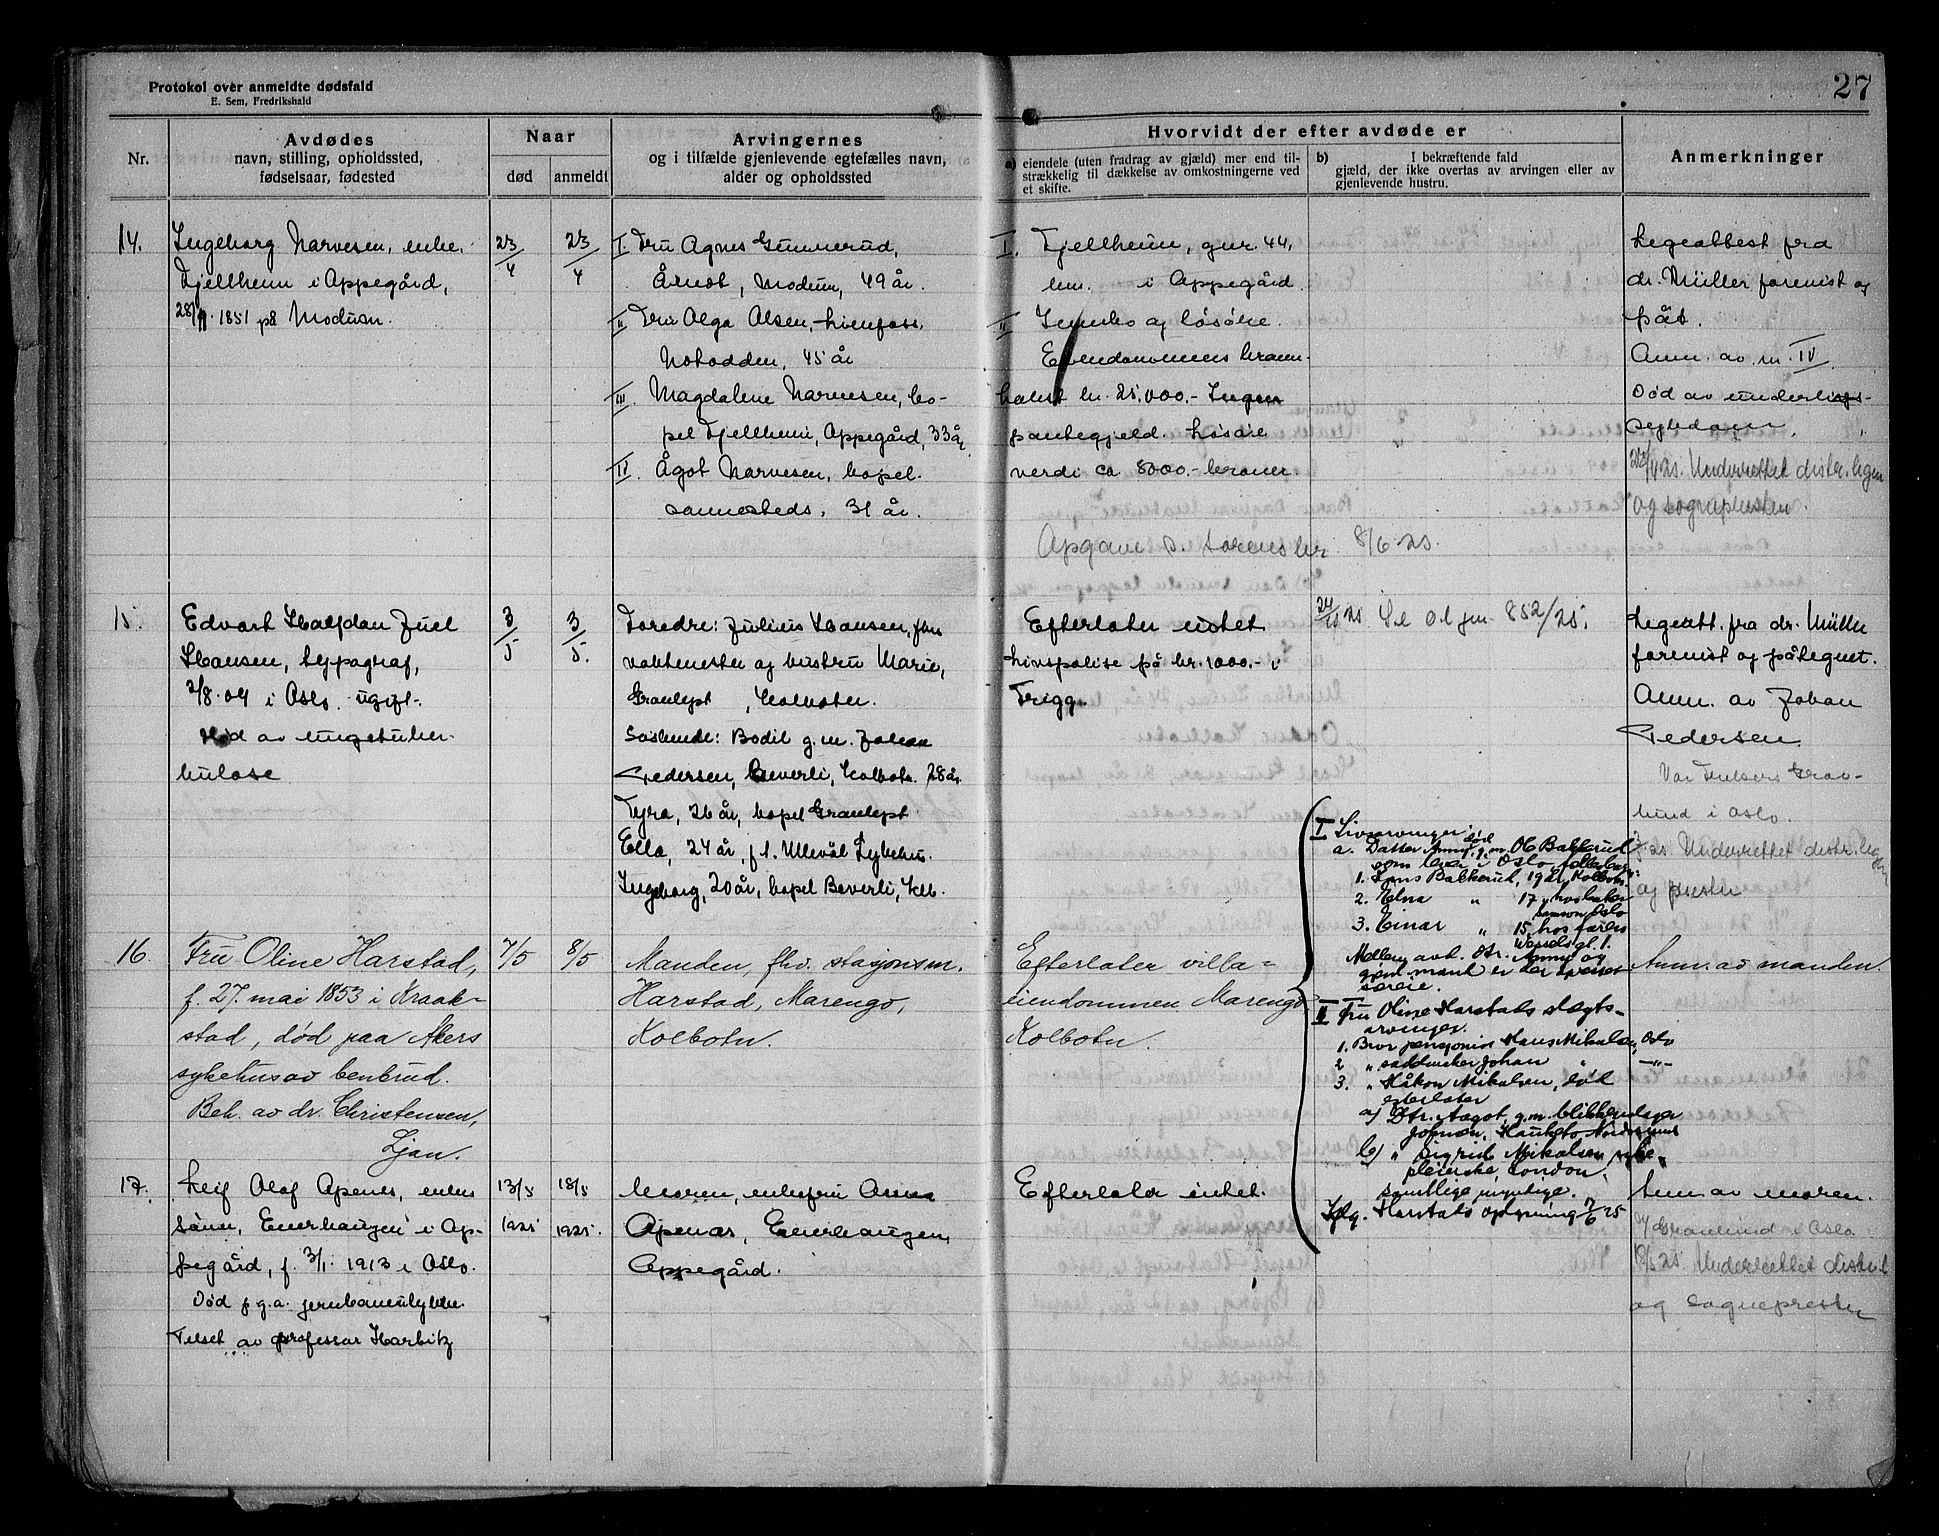 Protokol over anmeldte dødsfald
E. Sem, Fredrikshald
27
Nr.
Avdødes
navn, stilling, opholdssted,
fødselsaar, fødested
Naar
død
anmeldt
Arvingernes
og i tilfælde gjenlevende egtefælles navn,
alder og opholdssted
Hvorvidt der efter avdøde er
a) eiendele (uten fradrag av gjæld) mer end til-
strækkelig til dækkelse av omkostningerne ved
et skifte.
b) I bekræftende fald
gjæld, der ikke overtas av arvingen eller av
gjenlevende hustru.
Anmerkninger
14.
Ingeborg Narvesen, enke.
Fjellheim i Oppegård,
1851 på Modum.
23/4
23/4
I. Fru Agnes Gunnerud,
Åmot, Modum, 49 år.
II Fru Olga Olsen, Lienfoss,
Notodden, 45 år
III Magdalene Narvesen, bo-
pel Fjellheim, Oppegård, 33 år
IV Ågot Narvesen, bopel
sammesteds, 31 år.
I. Fjellheim, gnr. 44,
bnr. i Oppegård.
II Innbo og løsøre.
Eiendommens brann-
takst kr. 25.000.- Ingen
pantegjeld. Løsøre
verdi ca 8000.- kroner
Opgave s. sorenskr. 8/6 25.
Legeattest fra
dr. Müller forevist og
påt.
Anm. av nr. IV
Død av underlivs-
sygdom.
Underrettet distr. legen
og sognepresten.
15.
Edvart Halfdan Juel
Hansen, typograf,
2/8. 04 i Oslo. ugift.
Død av lungetuber-
kulose
3/5
3/5.
Foredre: Julius Hansen, fhv
vaktmester og hustru Marie,
Granlyst, Kolbotn.
Søskende: Bodil g.m. Johan
Pedersen, Beverli, Kolbotn. 28 år
Fyra, 26 år, bopel Granlyst.
Ella, 24 år, f.t. Ullevål Sykehus.
Ingeborg, 20 år, bopel Beverli, Kolb.
Efterlater intet
Livspolise på kr. 1000.- i
Trygg.
25. Se O.l. jnr. 852/25.
Legeatt. fra dr. Müller
forevist og påtegnet.
Anm. av Johan
Pedersen.
Vor Frelsers Grav-
lund i Oslo.
25. Underrettet distr. legen
og presten
16.
Fru Oline Harstad,
f. 27. mai 1853 i Kraak-
stad, død paa Akers
sykehus av benbrud.
Beh. av dr. Christensen,
Ljan.
7/5
8/5
Manden, fhv. stasjonsm.
Harstad, Marengo,
Kolbotn.
Efterlater villa=
eiendommen Marengo
Kolbotn.
I Livsarvinger
a. Datter Anny, død g.m. Ole Bakkerud
som lever i Oslo, efterlater:
1. Jens Bakkerud, 19 år, Kolbotn
2. Elna " 17 " hos baker
Samson Oslo
3. Einar " 15, hos faren
Wesselsgt. 1.
Mellem avd. dtr. Anny og
gjenl. mand er der opréttet
særeie.
II Fru Oline Harstads slægts-
arvinger.
1. Bror pensjonist Hans Mikalsen, Oslo
2 " saddmaker Johan " —"—
3. " Håkon Mikalsen, død
efterlater
a) Dtr. Aagot, g.m. blikkenslager
Johnsen, Hauketo, Nordstrand
b) " Sigrid Mikalsen syke-
pleierske London.
Samtlige myndige.
Iflg. Harstads oplysning 7/6 25
Anm. av manden.
17.
Leif Olaf Apenes, enkes
sønn, Enerhaugen i Op-
pegård, f. 3/1. 1913 i Oslo.
Død p.g.a. jernbaneulykke
Attest av professor Harbitz
13/5
1925
18/5
1925.
Moren, enkefru Anna
Apenæs, Enerhaugen,
Oppegård.
Efterlater intet.
Anm. av moren.
Gravlund i Oslo.
18/5 25. Underrettet distr.l
og sognepresten